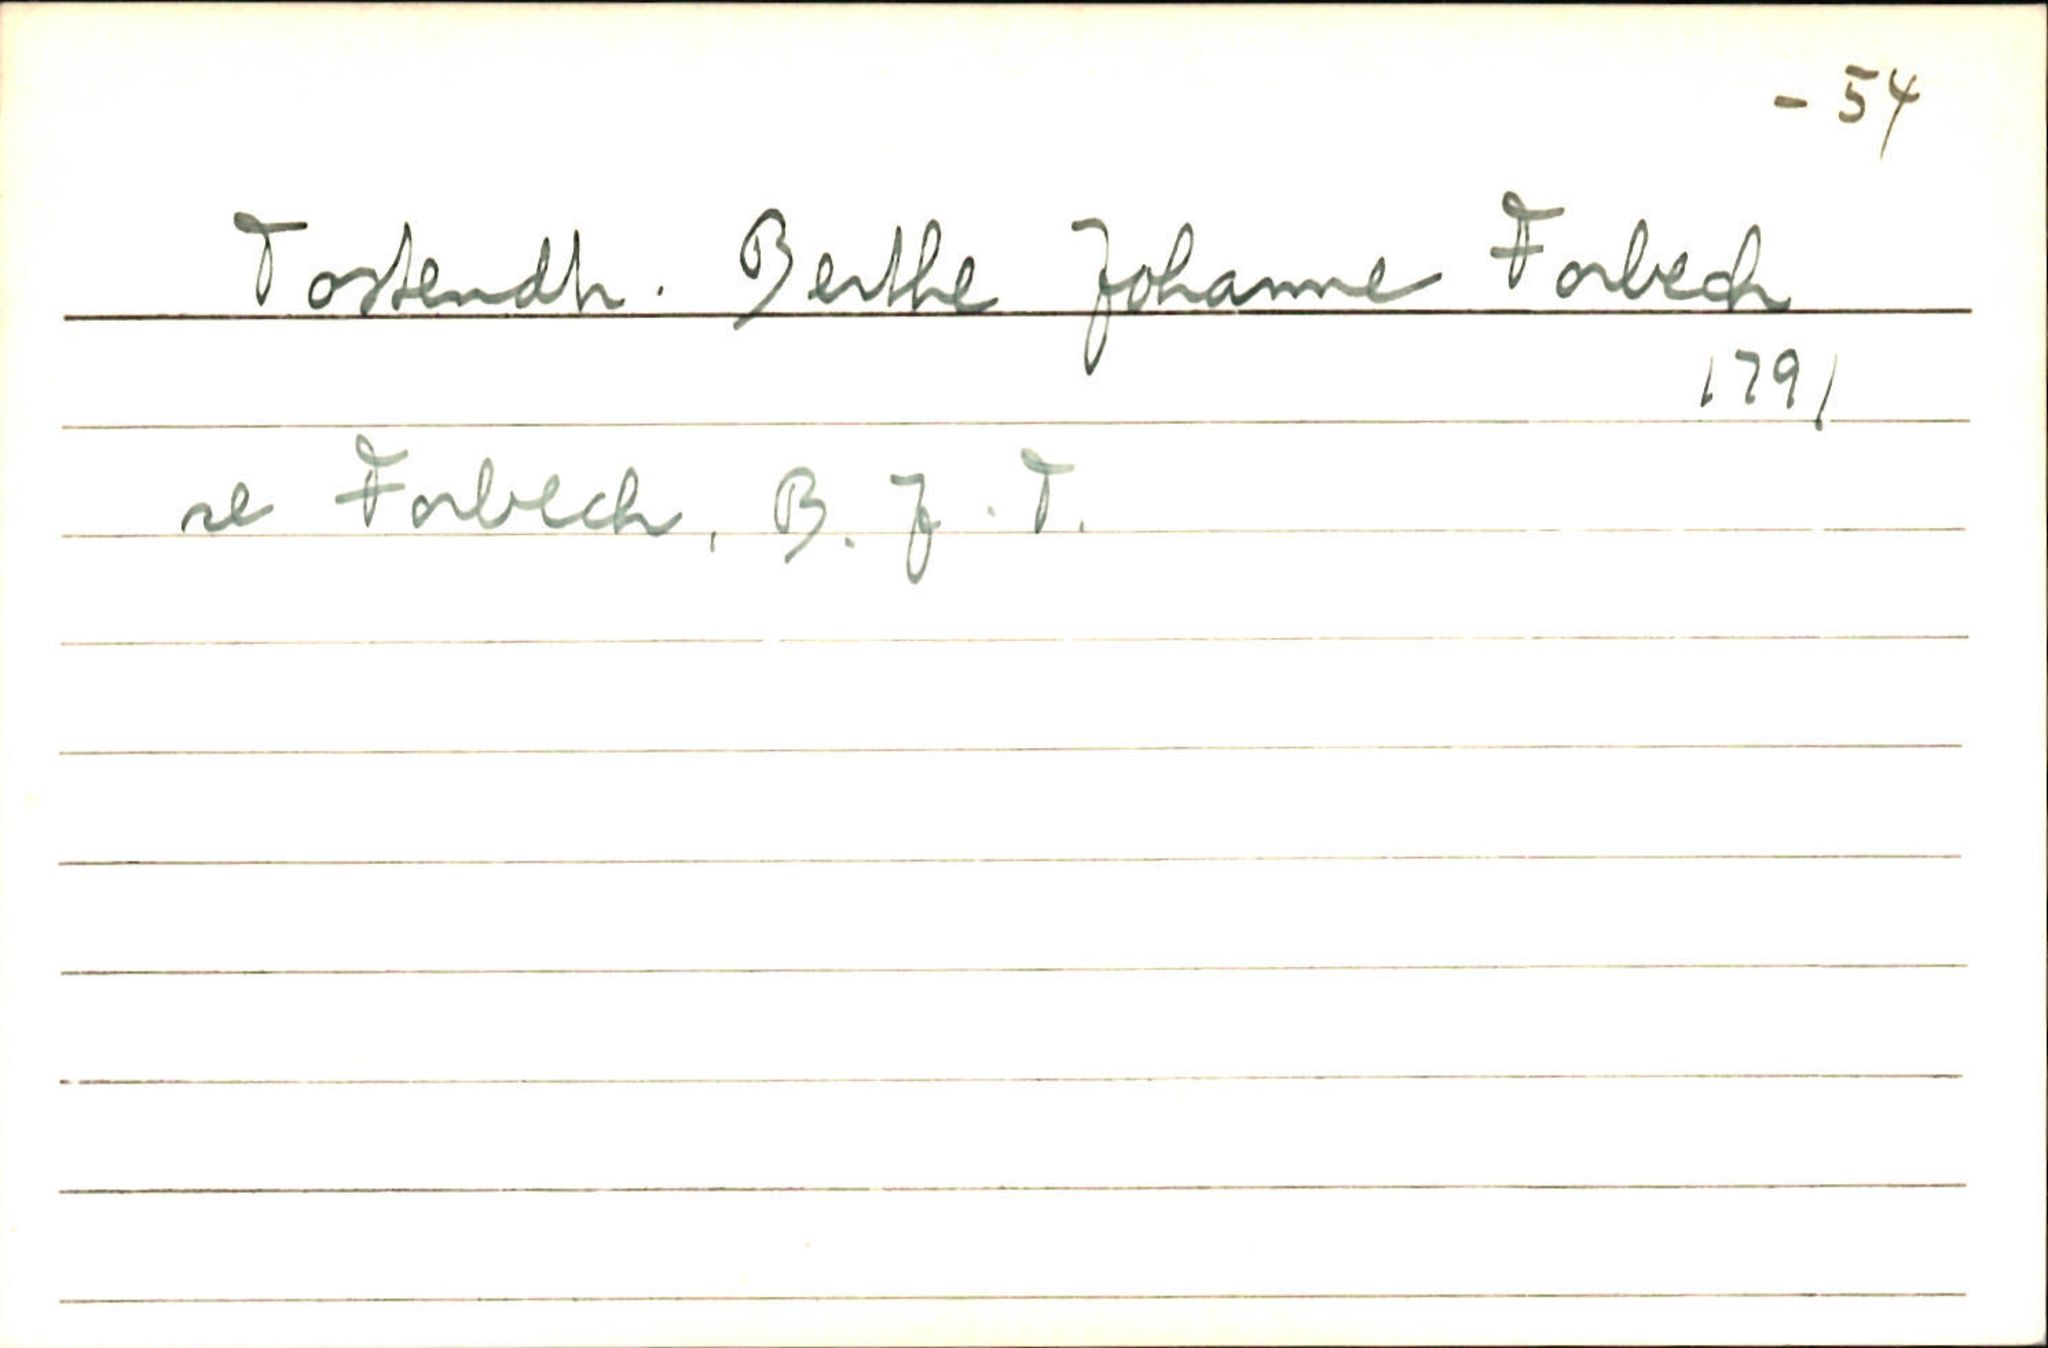 - 54
Tostendtr. Berthe Johanne Forbech
1791
se Forbech, B. J. T.